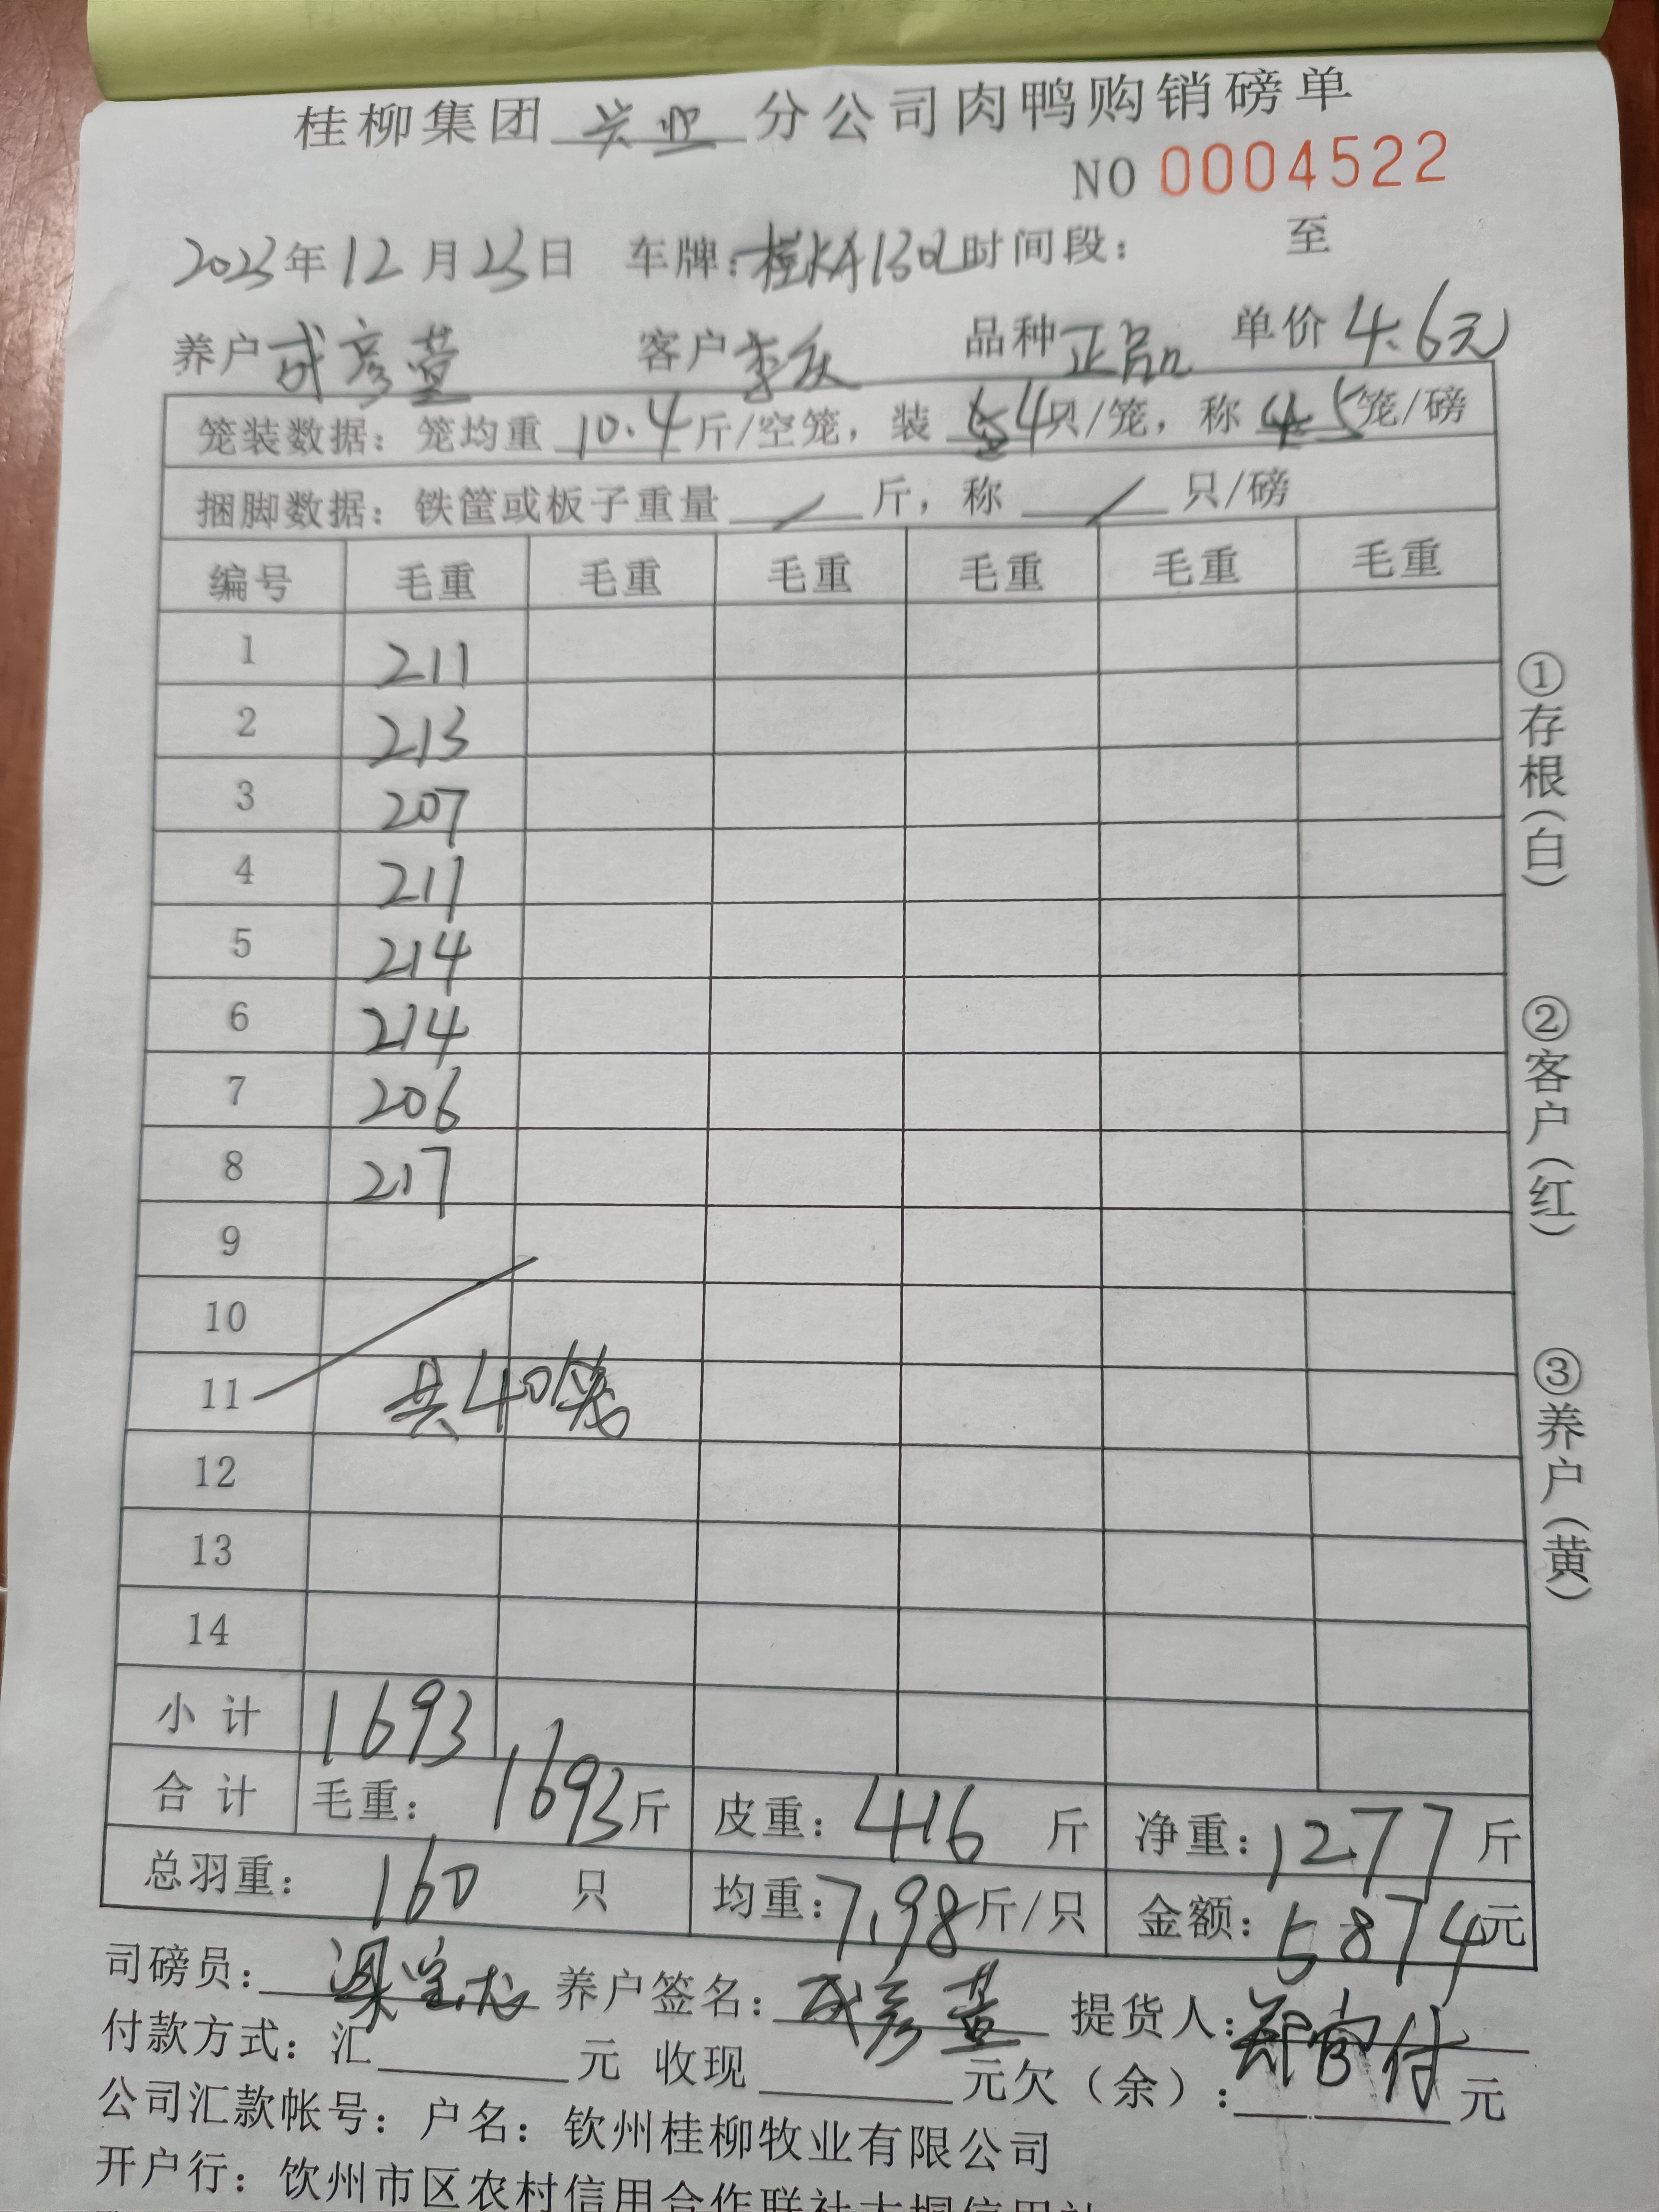 桂柳集团 兴业 分公司肉鸭购销磅单
NO 0004522
2023年12月23日 车牌: 时间段: 至
养户 成彦萱 客户 李庆 品种 正品 单价 4.6元
笼装数据: 笼均重 10.4 斤/空笼, 装 4 只/笼, 称 5 笼/磅
捆脚数据: 铁筐或板子重量 / 斤, 称 / 只/磅
编号 毛重 毛重 毛重 毛重 毛重 毛重
1 211
2 213
3 207
4 211
5 214
6 214
7 206
8 217
9
10
11 共40笼
12
13
14
小计 1693
合计 毛重: 1693斤 皮重: 416 斤 净重: 1277 斤
总羽重: 160 只 均重: 7.98斤/只 金额: 5874元
司磅员: 养户签名: 成彦萱 提货人:
付款方式: 汇 元 收现 元欠(余): 元
公司汇款帐号: 户名: 钦州桂柳牧业有限公司
开户行: 饮州市区农村信用合作联社大垌信用社
①存根(白)
②客户(红)
③养户(黄)